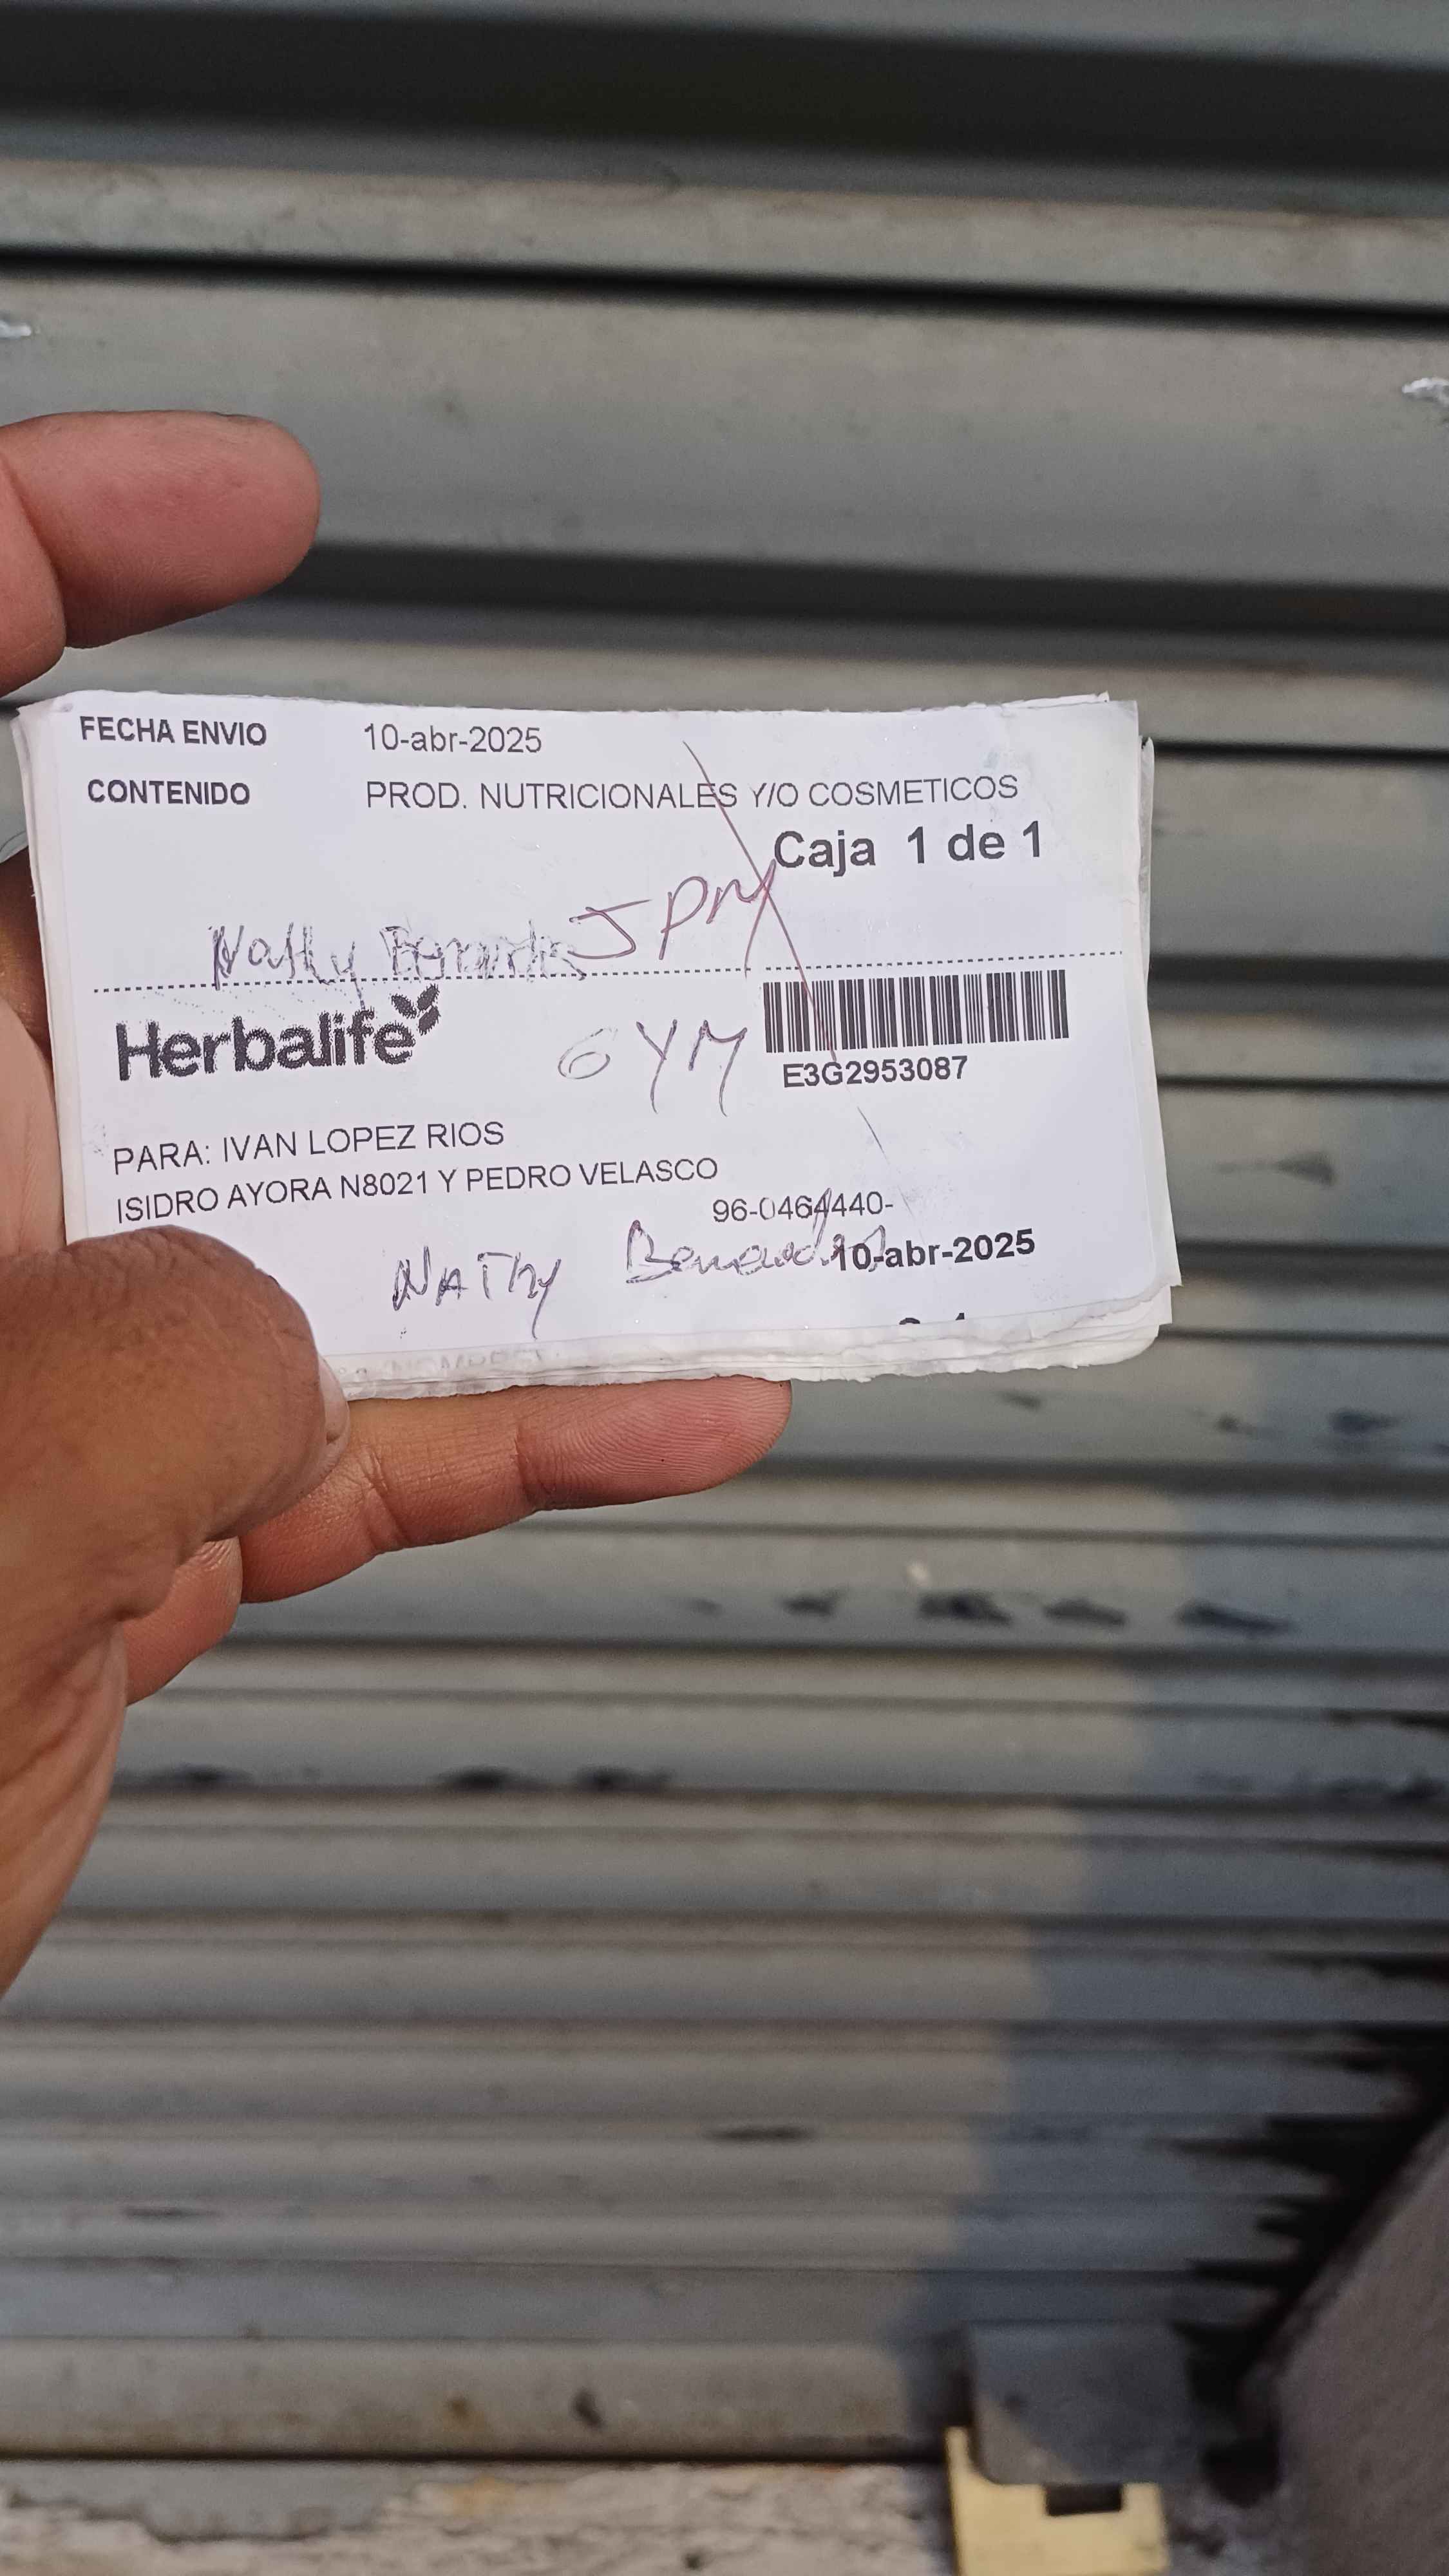 FECHA ENVIO 10-abr-2025
CONTENIDO PROD. NUTRICIONALES Y/O COSMETICOS
Caja 1 de 1
Nathy JPM
Herbalife GYM
E3G2953087
PARA: IVAN LOPEZ RIOS
ISIDRO AYORA N8021 Y PEDRO VELASCO
96-0464440-
NAThy 10-abr-2025